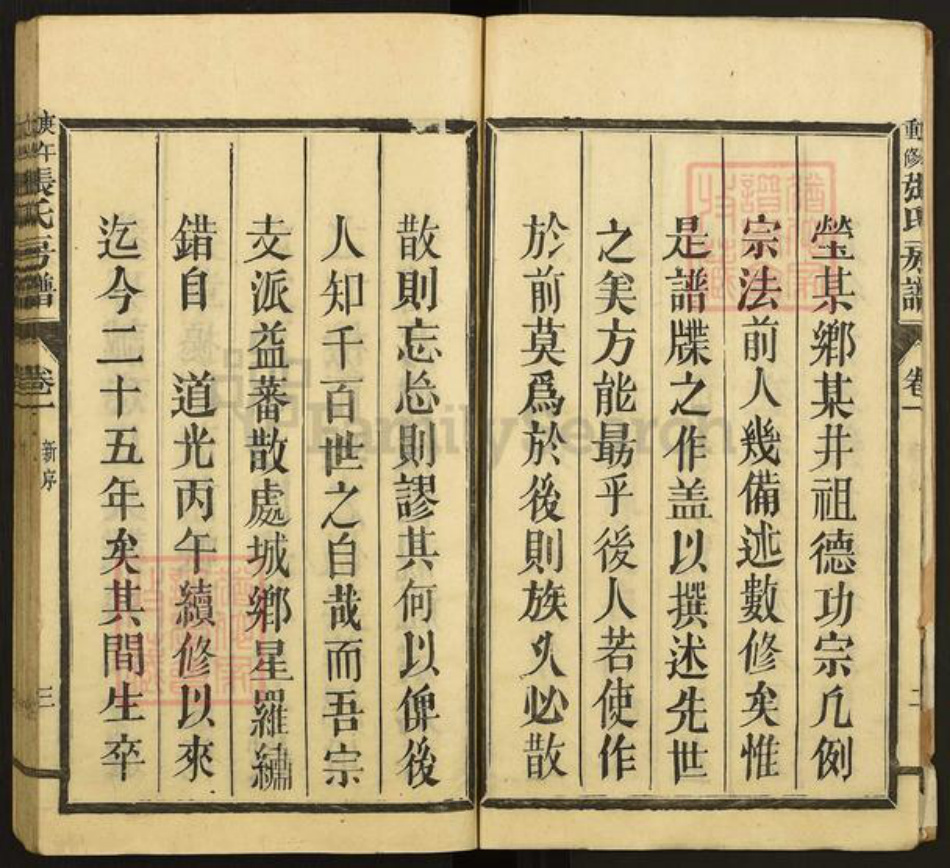 重修張氏房譜 卷一 二
塋某鄉某井祖德功宗凢例
宗法前人幾備述數修矣惟
是譜牒之作盖以撰述先世
之矣方能最乎後人若使作
於前莫爲於後則族乆必散
散則忘忘則謬其何以俾後
人知千百世之自哉而吾宗
支派益蕃散處城鄉星羅繡
錯自 道光丙午續修以來
迄今二十五年矣其間生卒
庚午張氏房譜 卷一 新序 三
FamilySearch